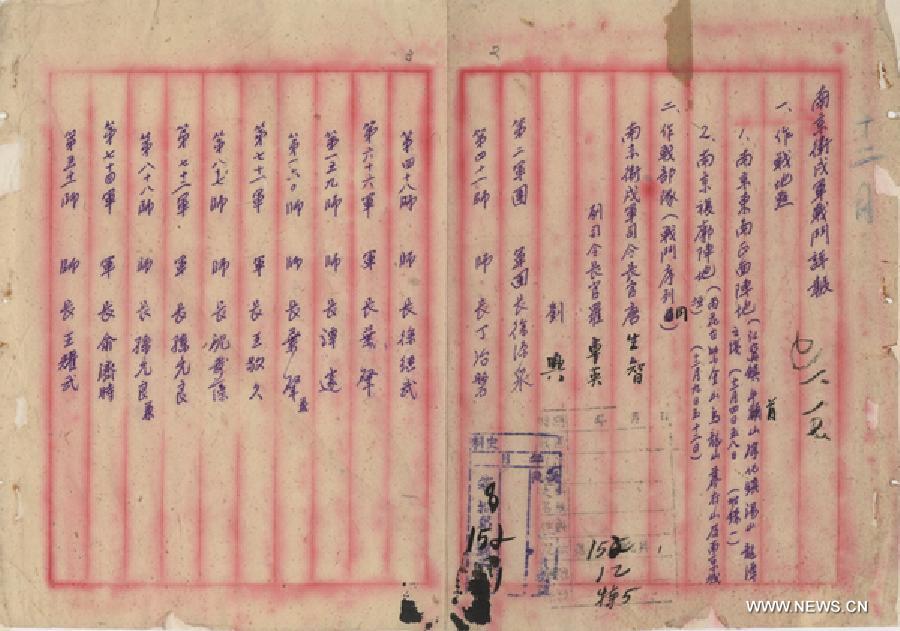 十二月
南京衛戍軍戰鬥詳報
一、作戰地點
1. 南京東南正面陣地(江寧鎮 牛首山 淳化鎮 湯山 龍潭
之綫(十二月四日至八日)(附錄一)
2. 南京複廓陣地(雨花台 紫金山 烏龍山 幕府山 及南京城
垣)(十二月九日至十二日)
二、作戰部隊(戰鬥序列)
南京衛戍軍司令長官唐生智
副司令長官羅卓英
劉興
第二軍團 軍團長徐源泉
第四十一師 師長丁治磐
2
3
第四十八師 師長徐繼武
第六十六軍 軍長葉肇
第一五九師 師長譚邃
第一六〇師 師長葉肇兼
第七十一軍 軍長王敬久
第八七師 師長沈發藻
第七十二軍 軍長孫元良
第八十八師 師長孫元良兼
第七十四軍 軍長俞濟時
第五十一師 師長王耀武
史料
8
152
152
12
特5
WWW.NEWS.CN